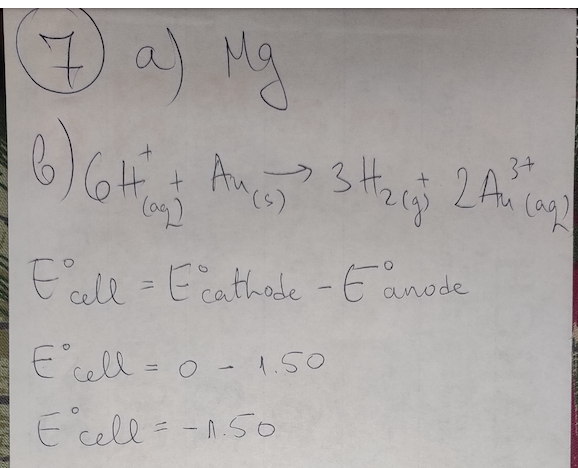 7 a) Mg
b) 6H⁺(aq) + Au(s) → 3H₂(g) + 2Au³⁺(aq)
E°cell = E°cathode - E°anode
E°cell = 0 - 1.50
E°cell = -1.50